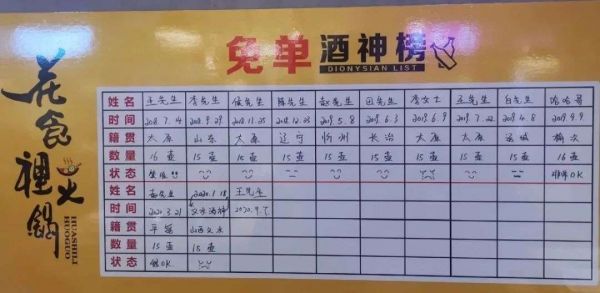 免单酒神榜
DIONYSIAN LIST
花食裡火鍋
HUASHILI
HUOGUO
姓名 王先生 李先生 侯先生 陈先生 赵先生 田先生 李女士 王先生 白先生 哈哈哥
时间 2018.7.14 2018.9.29 2018.11.25 2018.12.23 2019.5.8 2019.6.3 2019.6.9 2019.7.22 2019.4.8 2019.9.9
籍贯 太原 山东 太原 辽宁 忻州 长治 太原 太原 运城 榆次
数量 16壶 15壶 15壶 15壶 15壶 15壶 15壶 15壶 15壶 16壶
状态 非常OK
姓名 孟先生 2020.1.18 王先生
时间 2020.3.21 文水酒神 2020.9.7
籍贯 平遥 山西文水
数量 15壶 15壶
状态 都OK